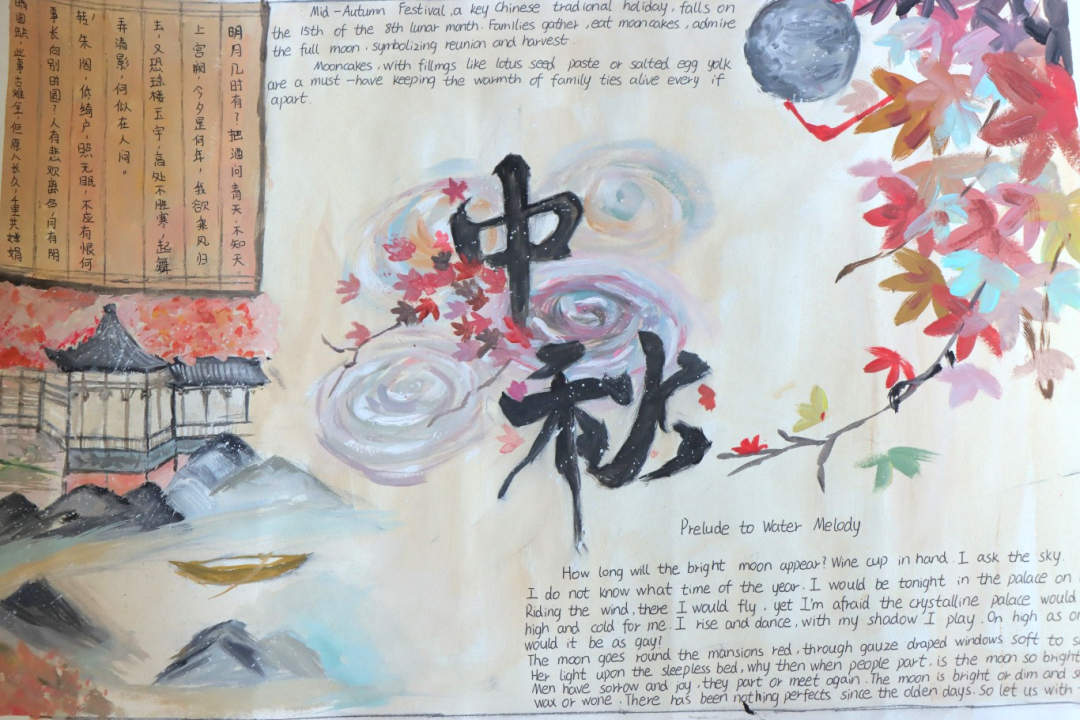 明月几时有？把酒问青天。不知天
上宫阙，今夕是何年，我欲乘风归
去，又恐琼楼玉宇，高处不胜寒，起舞
弄清影，何似在人间。
转，朱阁，低绮户，照无眠，不应有恨何
事，长向别时圆？人有悲欢离合，月有阴
晴圆缺，此事古难全，但愿人长久，千里共婵娟
Mid-Autumn Festival, a key Chinese tradional holiday, falls on
the 15th of the 8th lunar month. Families gather, eat mooncakes, admire
the full moon, symbolizing reunion and harvest.
Mooncakes, with fillings like lotus seed paste or salted egg yolk
are a must-have keeping the warmth of family ties alive every if
apart.
中
秋
Prelude to Water Melody
How long will the bright moon appear? Wine cup in hand. I ask the sky.
I do not know what time of the year. I would be tonight in the palace on
Riding the wind, there I would fly, yet I'm afraid the crystalline palace would
high and cold for me. I rise and dance, with my shadow I play. On high as on
would it be as gay?
The moon goes round the mansions red, through gauze draped windows soft to
Her light upon the sleepless bed, why then when people part, is the moon so bright
Men have sorrow and joy, they part or meet again. The moon is bright or dim and
wax or wane. There has been nothing perfects since the olden days. So let us with